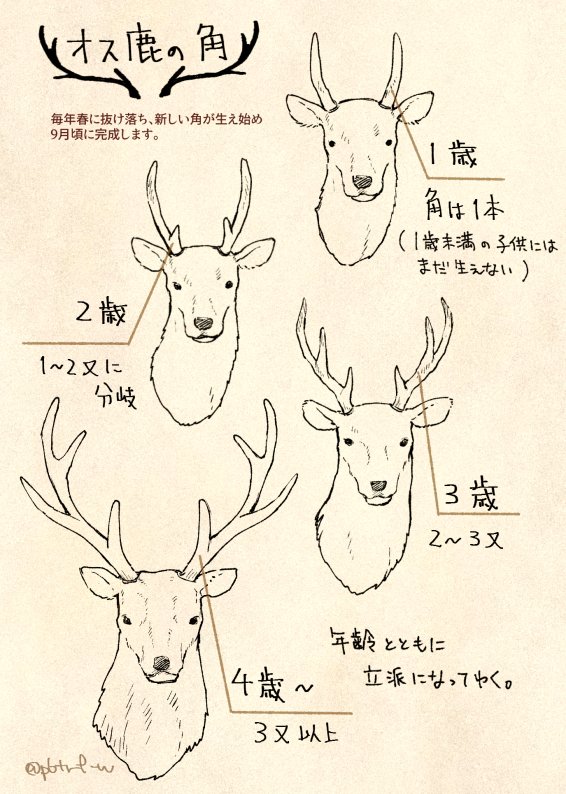 オス鹿の角
毎年春に抜け落ち、新しい角が生え始め
9月頃に完成します。
1歳
角は1本
(1歳未満の子供には
まだ生えない)
2歳
1〜2又に
分岐
3歳
2〜3又
4歳〜
3又以上
年齢とともに
立派になってゆく。